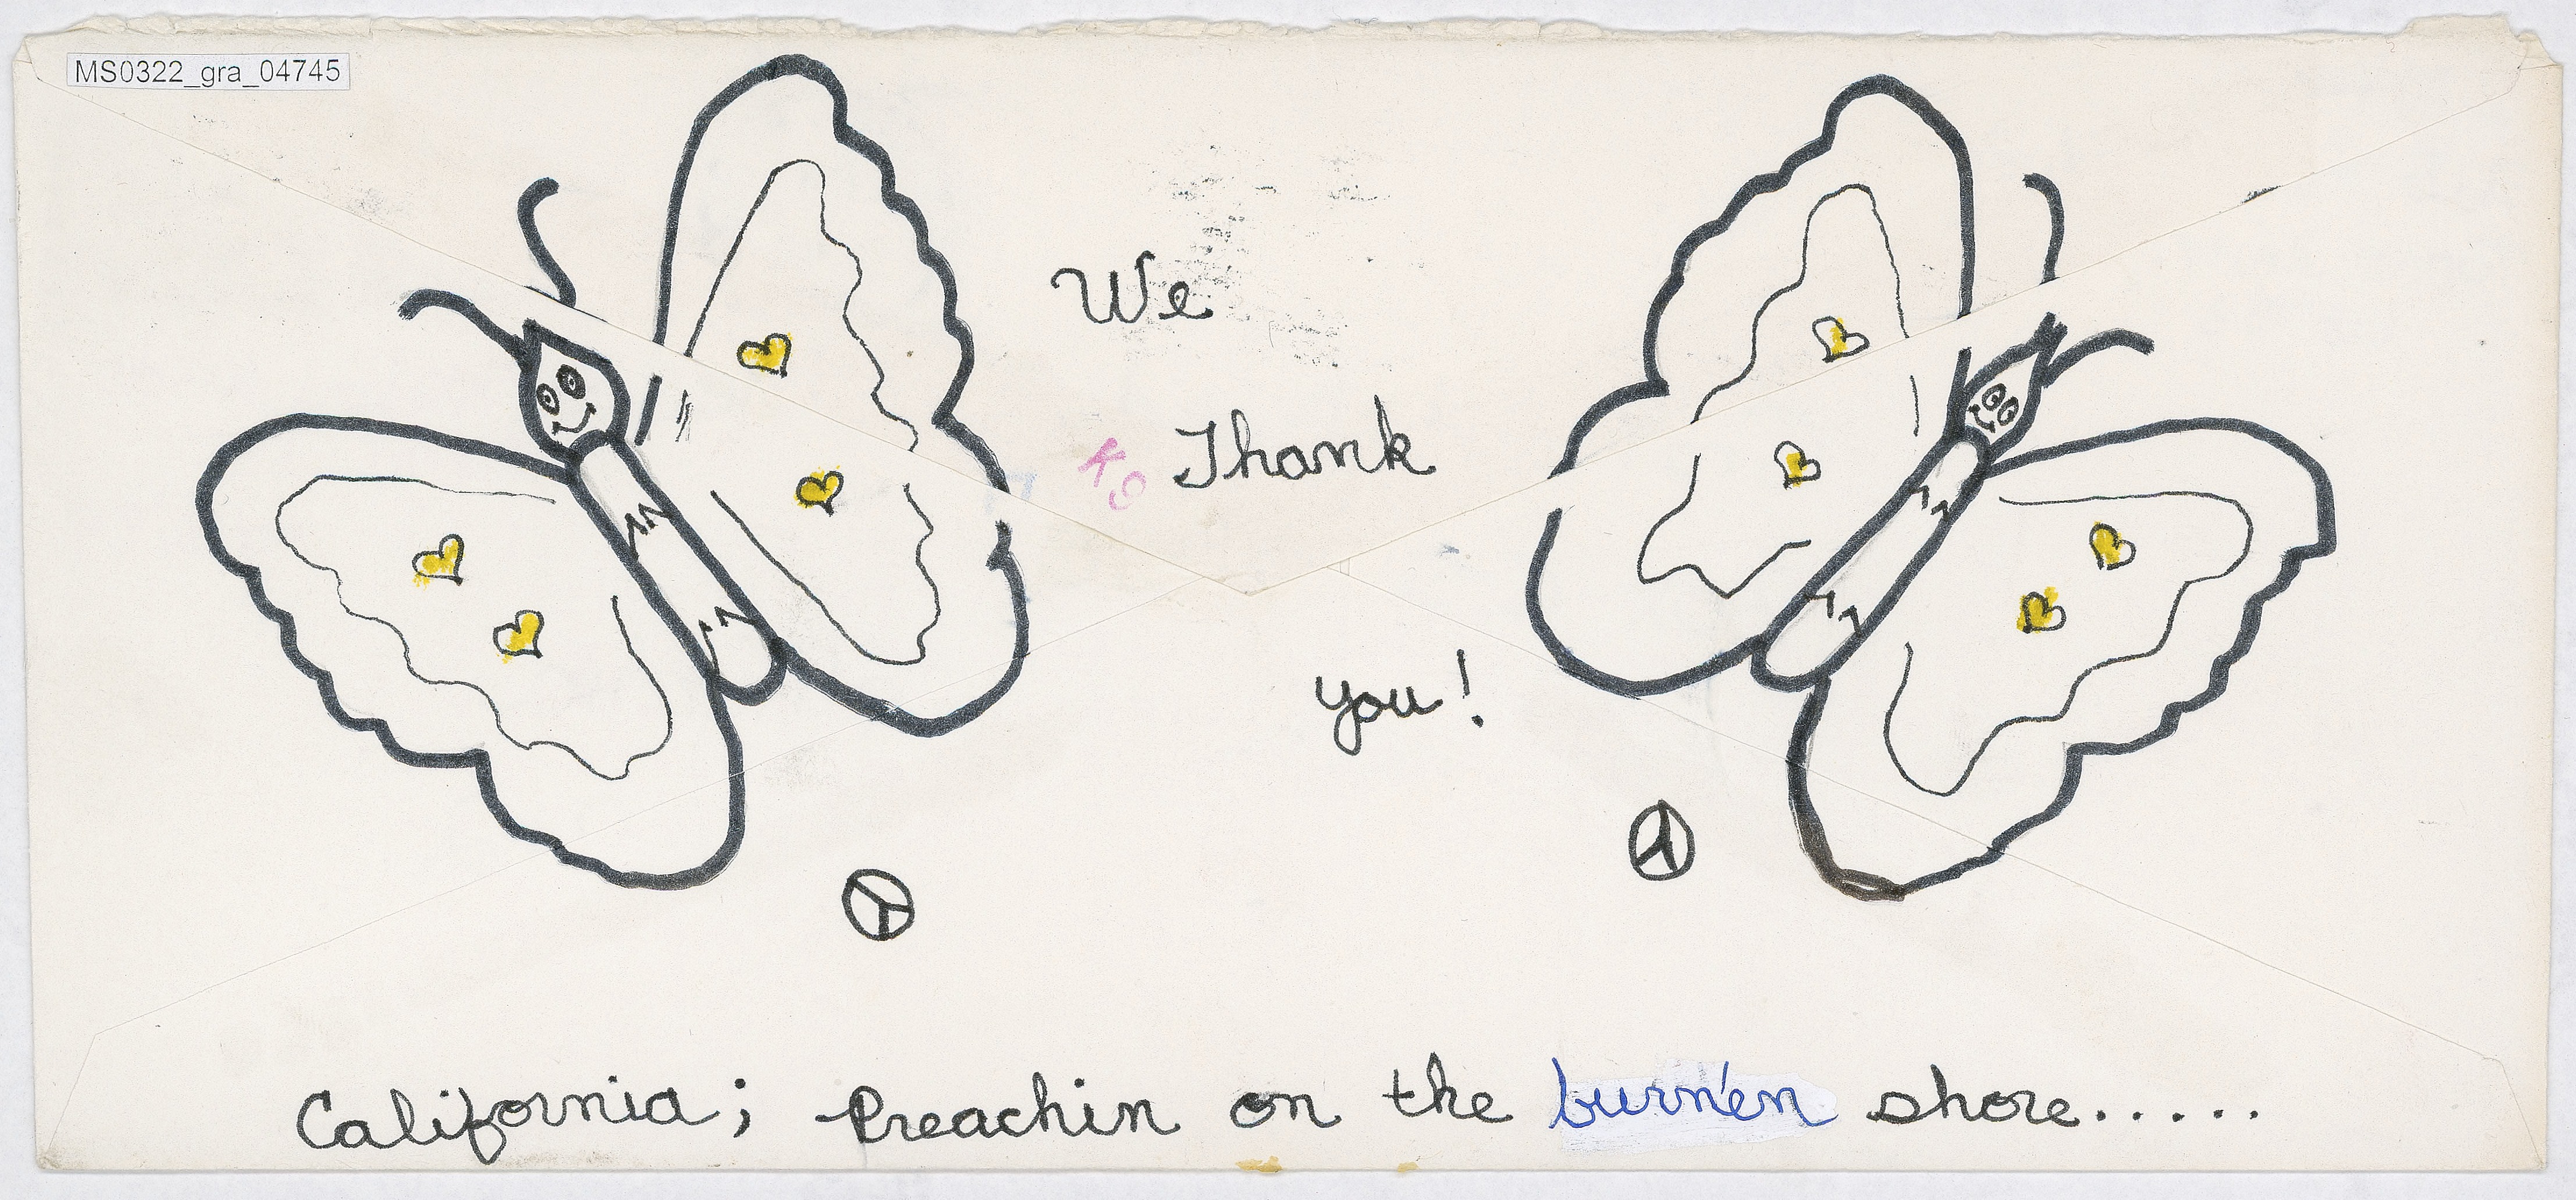 MS0322_gra_04745
We
K9
Thank
you!
California; Preachin on the burn'en shore.....